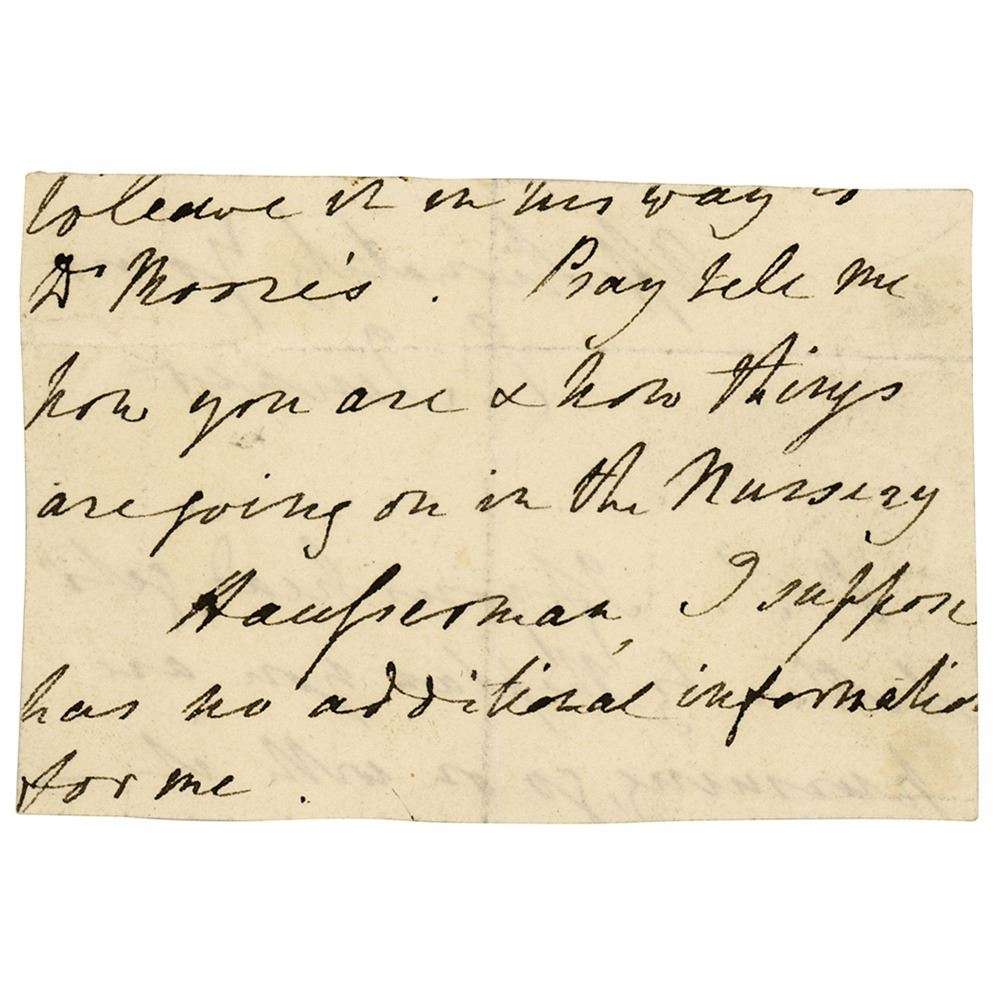 to leave it in his way to
Dr Moore's . Pray tell me
how you are & how things
are going on in the Nursery
Hausserman, I suppose
has no additional information
for me .